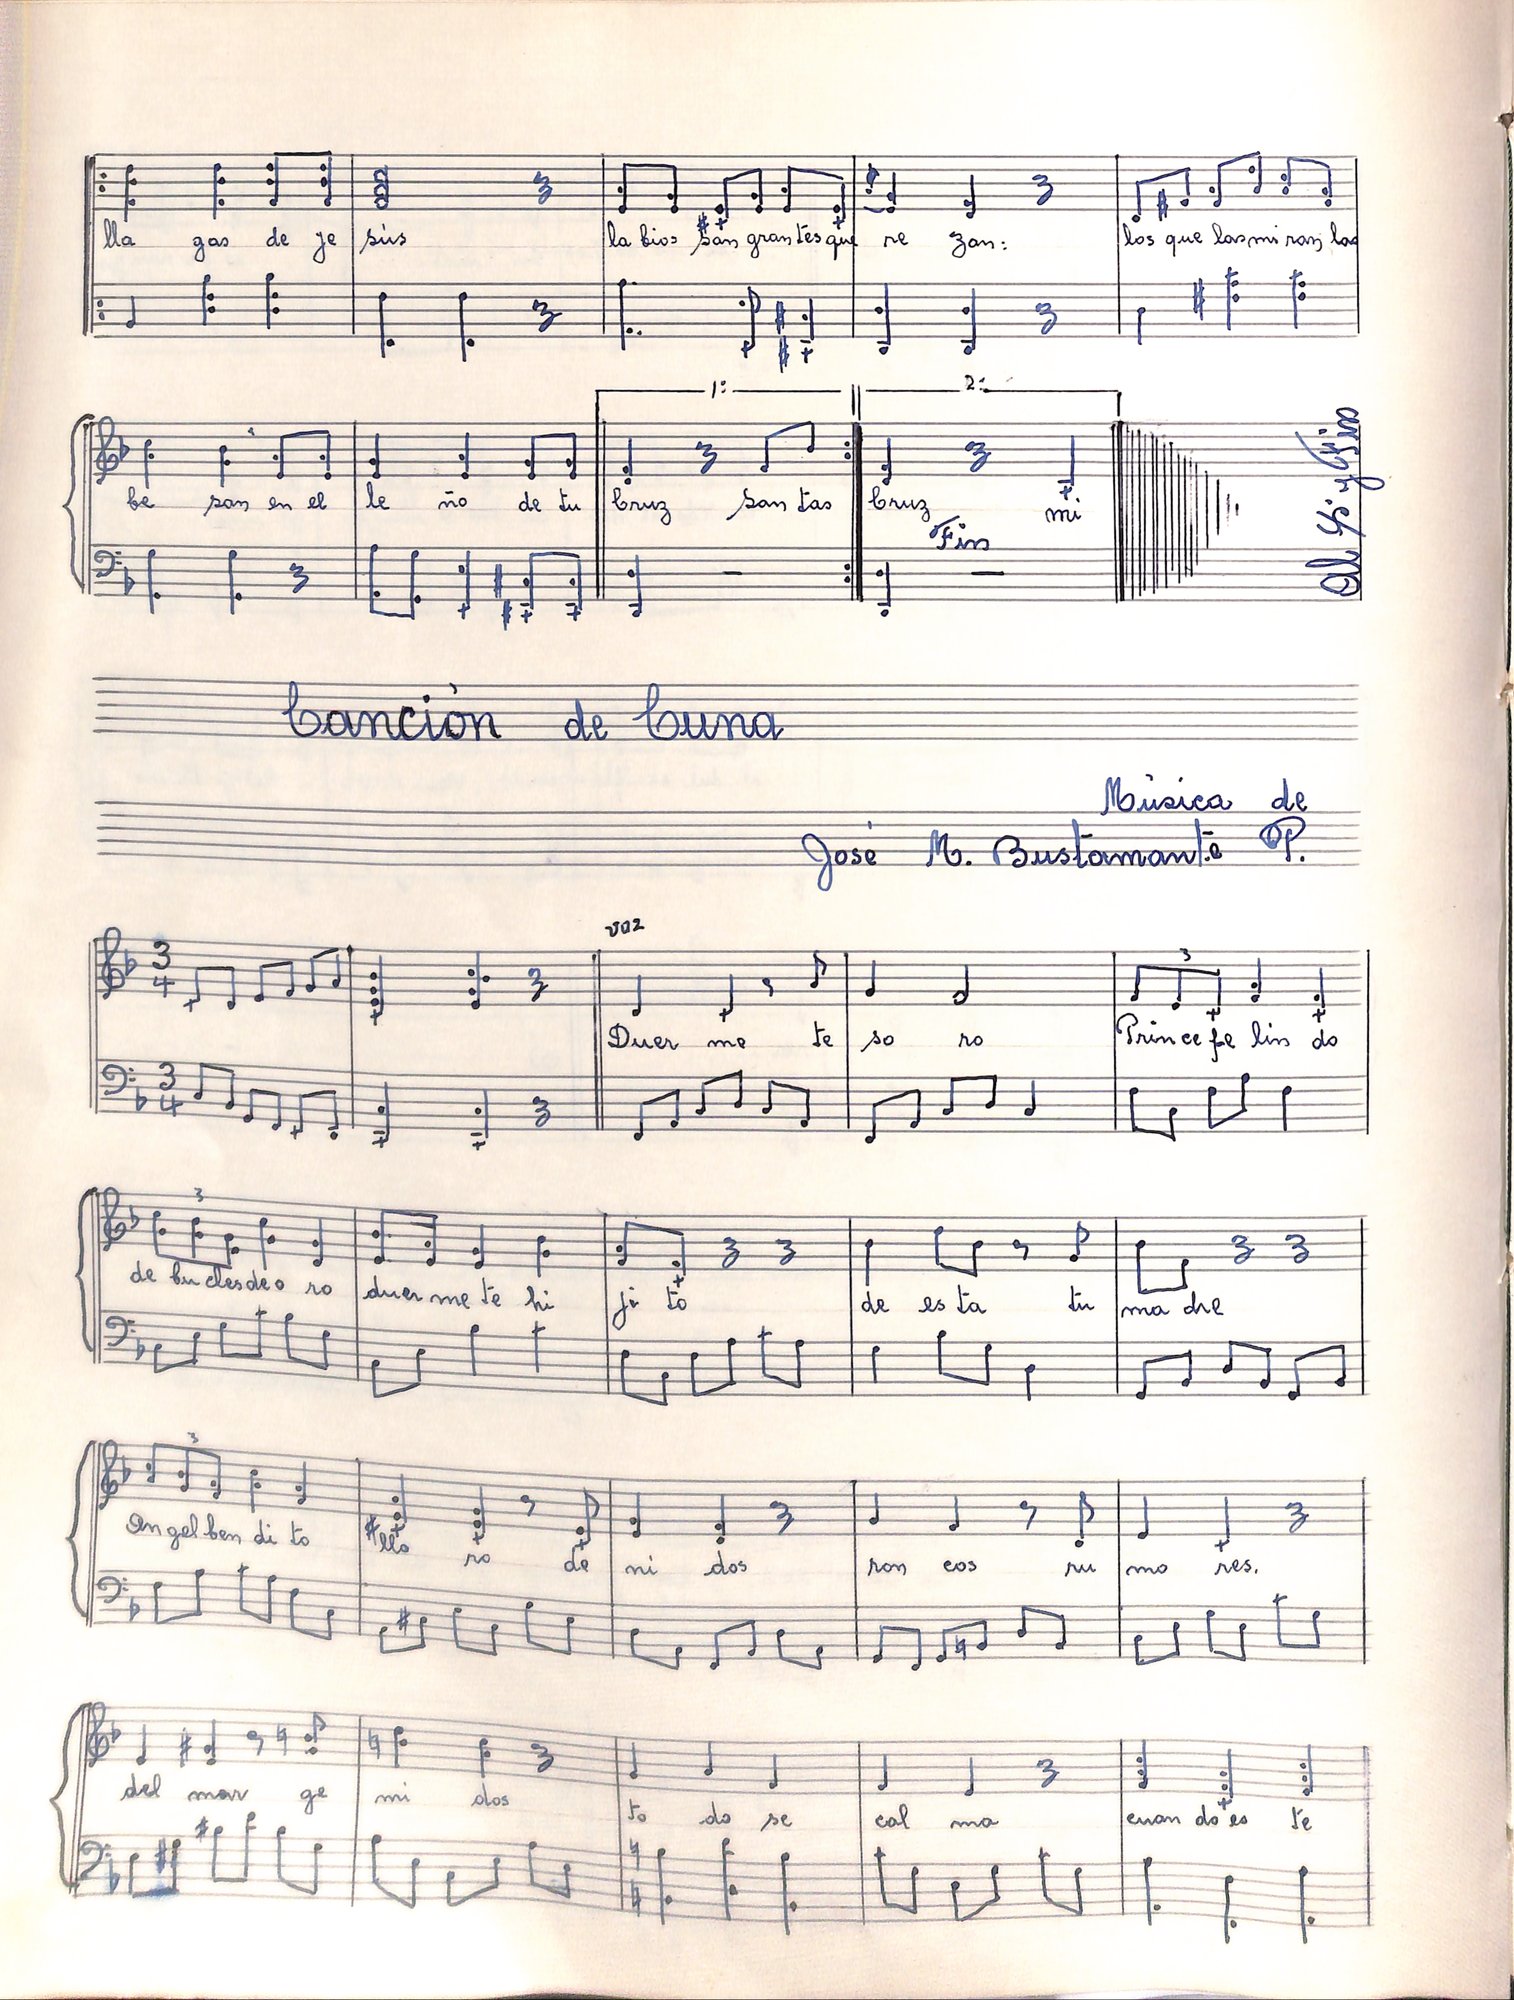 lla gas de je sús la bios san gran tes que re zan: los que las mi ran las
1: 2:
be san en el le ño de tu Cruz San tas Cruz mi
Fin
Al S y Fin
Canción de Cuna
Música de
José M. Bustamante P.
voz
3 4
3
Duer me te so ro Prin ce pe lin do
3 4
3
de bu cles de o ro duer me te hi ji to de es ta tu ma dre
3
An gel ben di to llo ro de ni dos ron cos ru mo res.
del mar ge mi dos to do se cal ma cuan do es te